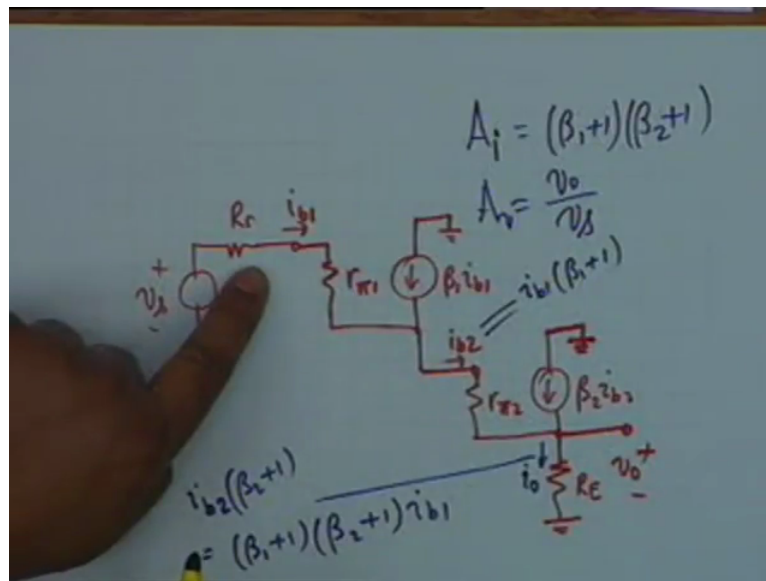 A_i = (β₁+1)(β₂+1)
A_v = v₀/v_s
R_r i_b1
v_s + -
r_π1
β₁i_b1
i_b1(β₁+1)
i_b2
r_π2
β₂i_b2
i₀
R_E
v₀ + -
i_b2(β₂+1)
= (β₁+1)(β₂+1)i_b1